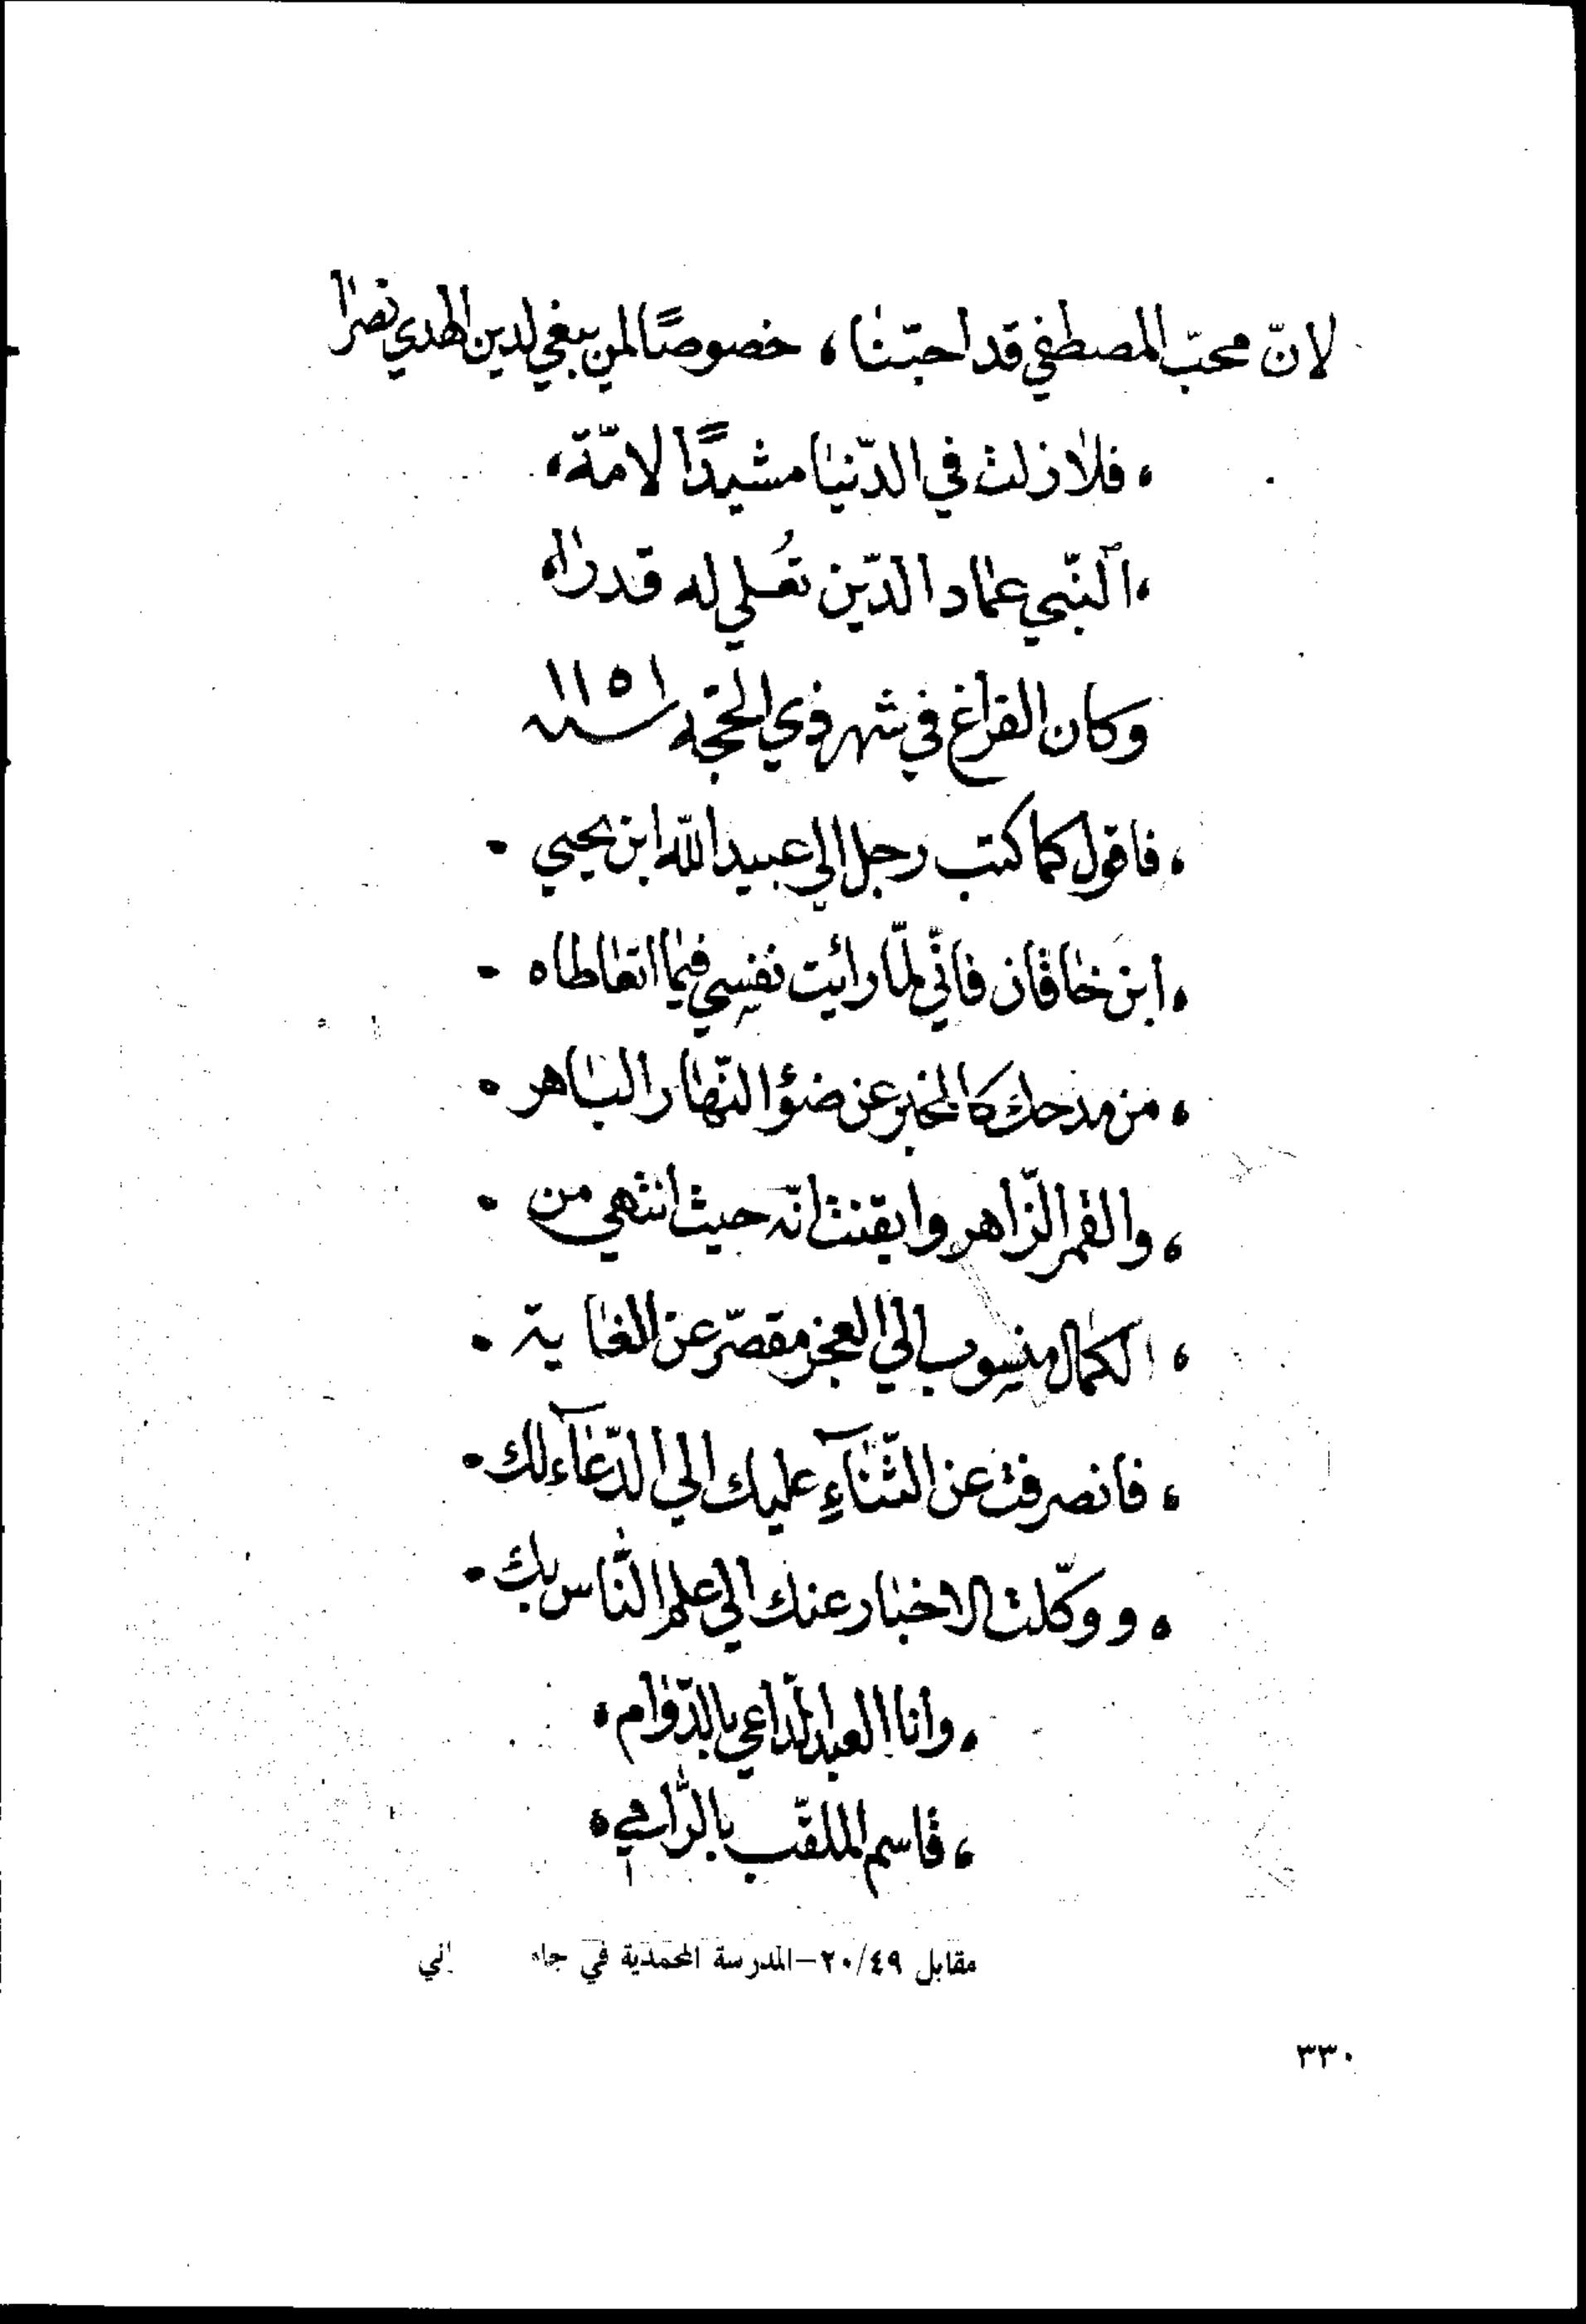 لانّ محبّ المصطفي قد احبّنا، خصوصًا لمن يبغي لدين الهدي نصرا
، فلا زلت في الدّنيا مشيدًا لامّة،
، النّبي عماد الدّين تُعلي له قدرا،
وكان الفراغ في شهر ذي الحجّه سنه ١١٥١
، فاقول كما كتب رجل الي عبيد الله ابن يحيي .
، ابن خاقان فانّي لمّا رائيت نفسي فيما اتعاطاه .
، من مدحك كالمخبر عن ضؤ النّهار الباهر .
، والقمر الزّاهر وايقنت انّه حيث انتهي من .
، الكمال منسوب الي العجز مقصّر عن الغاية .
، فانصرفت عن الثّنآءِ عليك الي الدّعآء لك .
، ووكّلت الاخبار عنك الي علم النّاس بك .
، وانا العبد الدّاعي بالدّوام،
، قاسم الملقّب بالرّامي،
مقابل ٢٠/٤٩ – المدرسة المحمدية في جا
٣٣٠